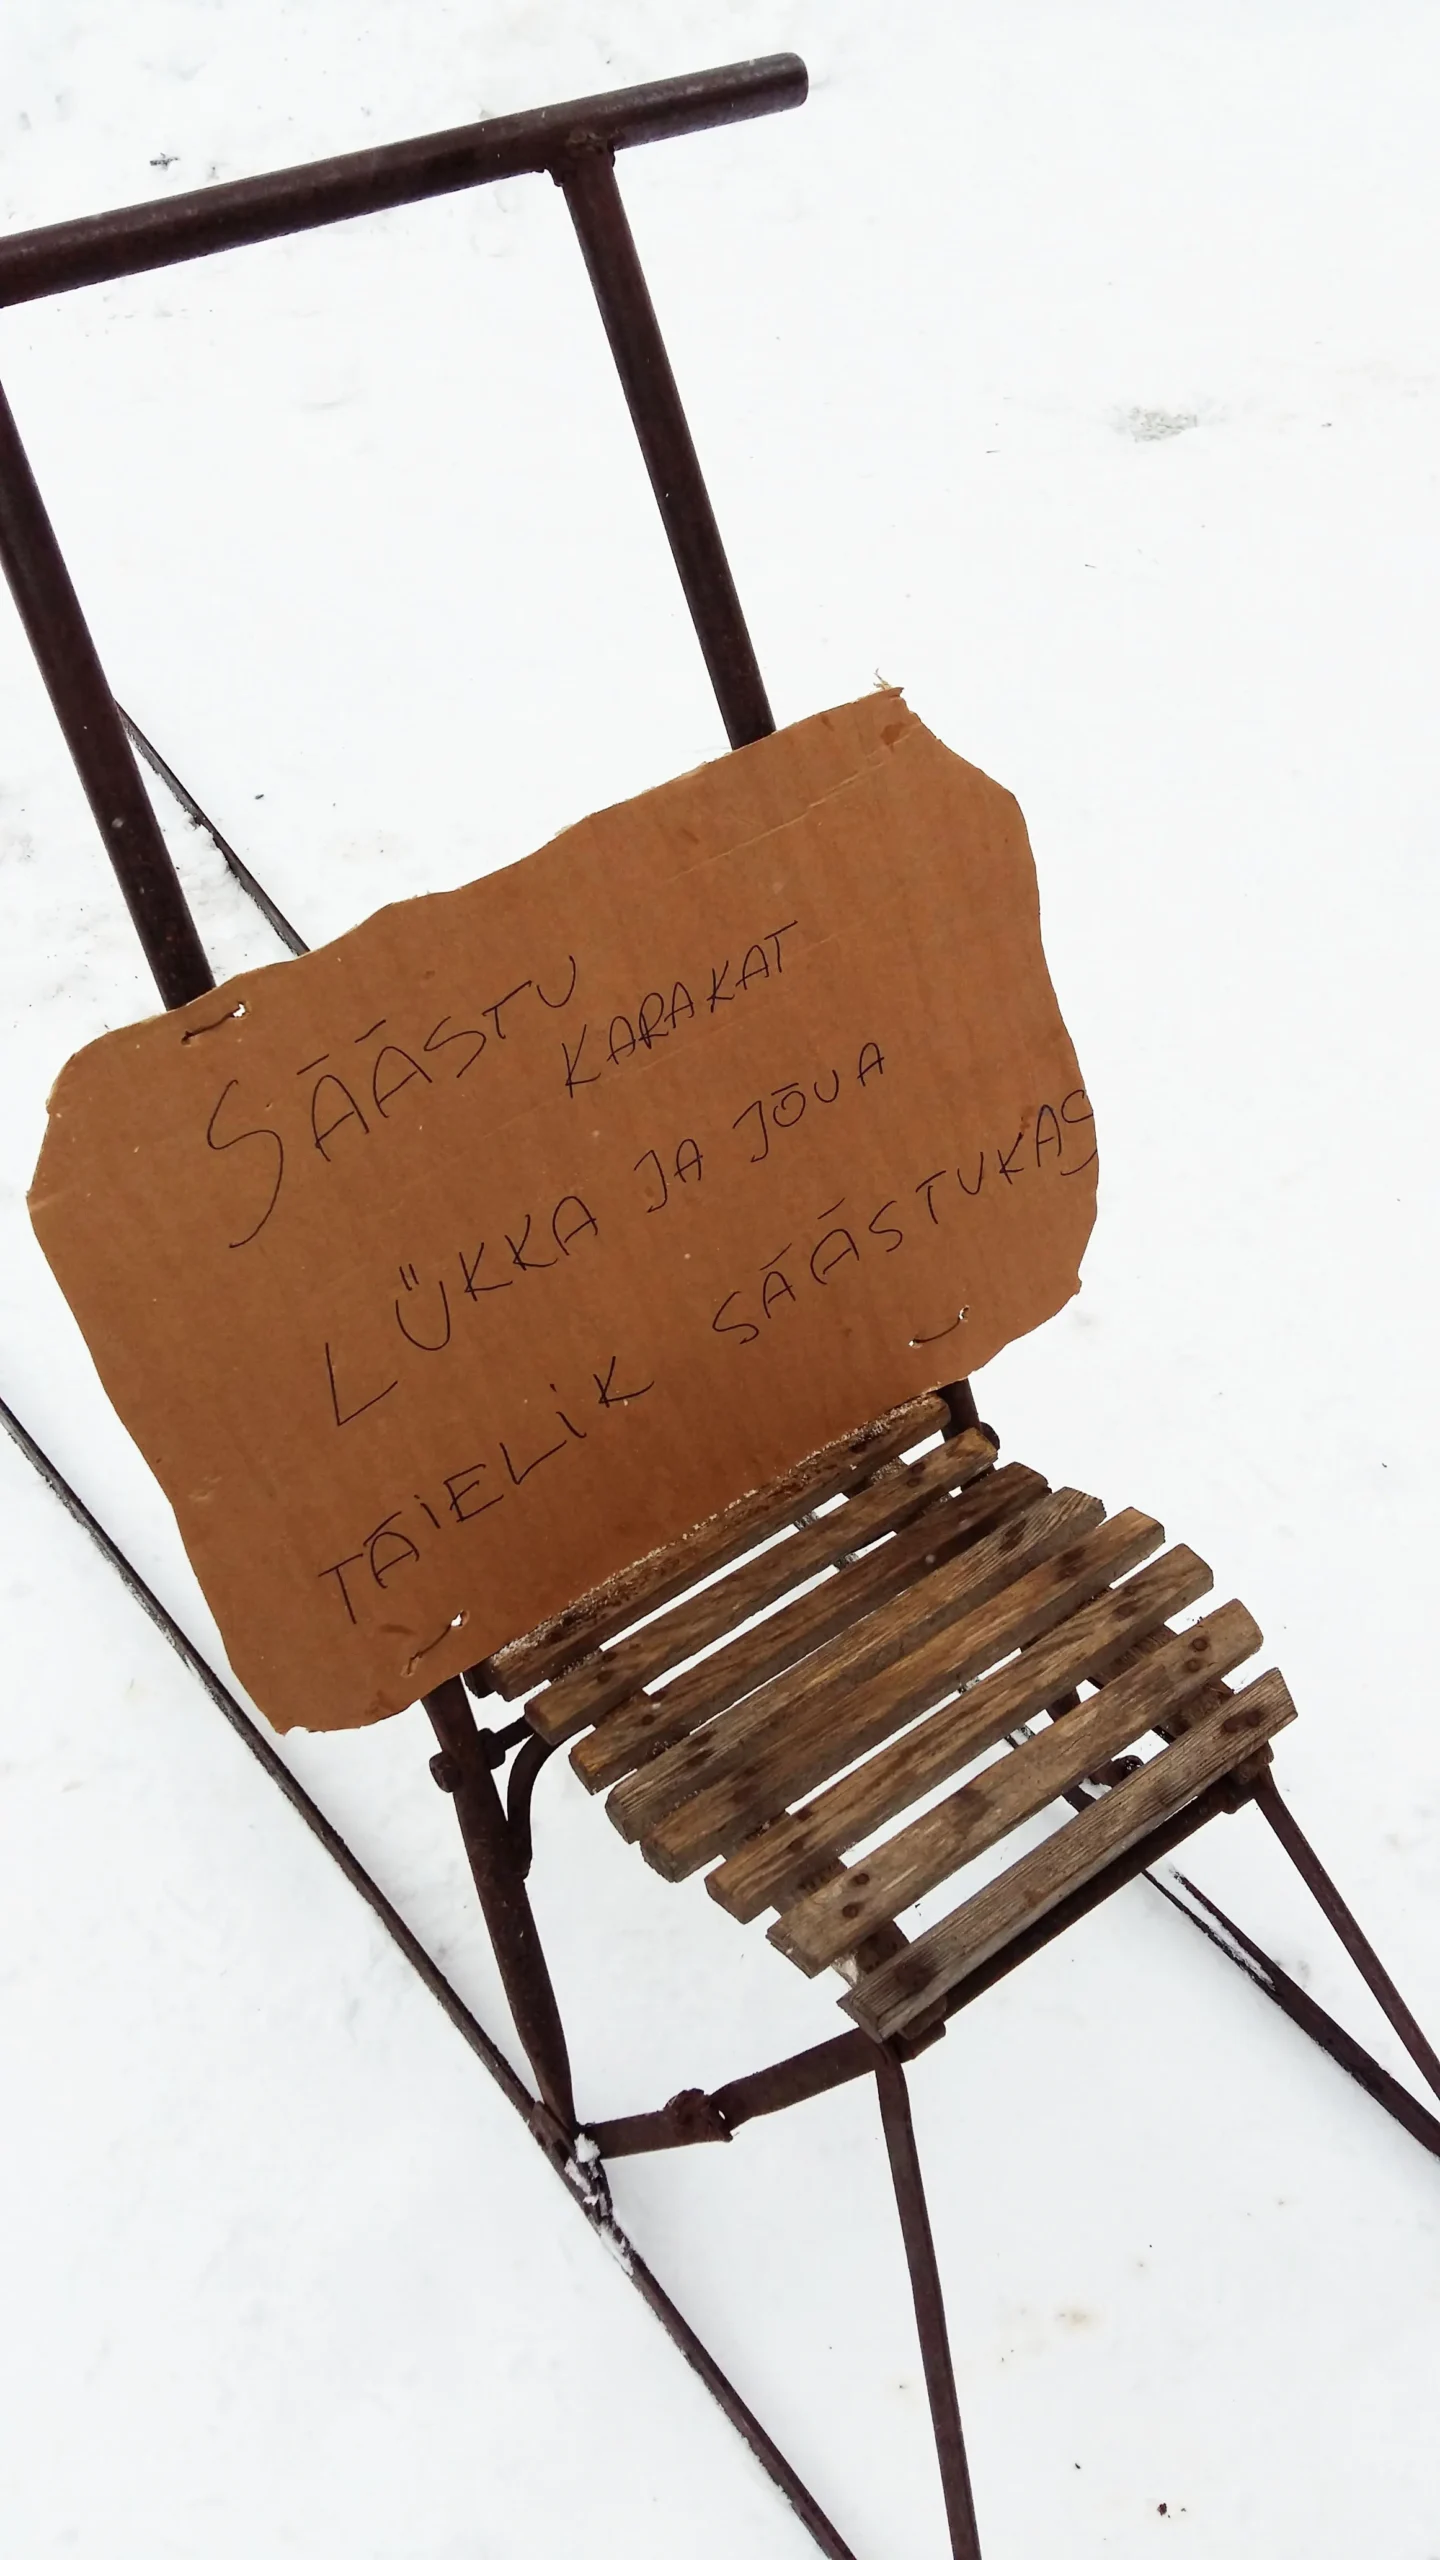 SÄÄSTU
KARAKAT
LÜKKA JA JÕUA
TÄIELIK SÄÄSTUKAS